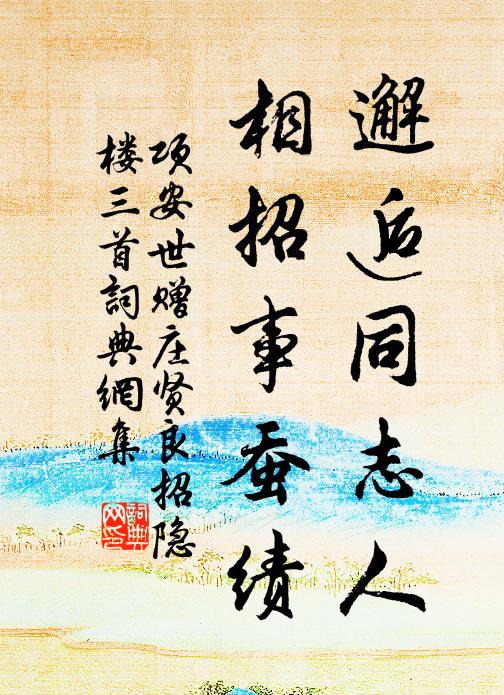 邂逅同志人
相招事蚕绩
项安世赠庄贤良招隐
楼三首詞典網集
詞典
网印